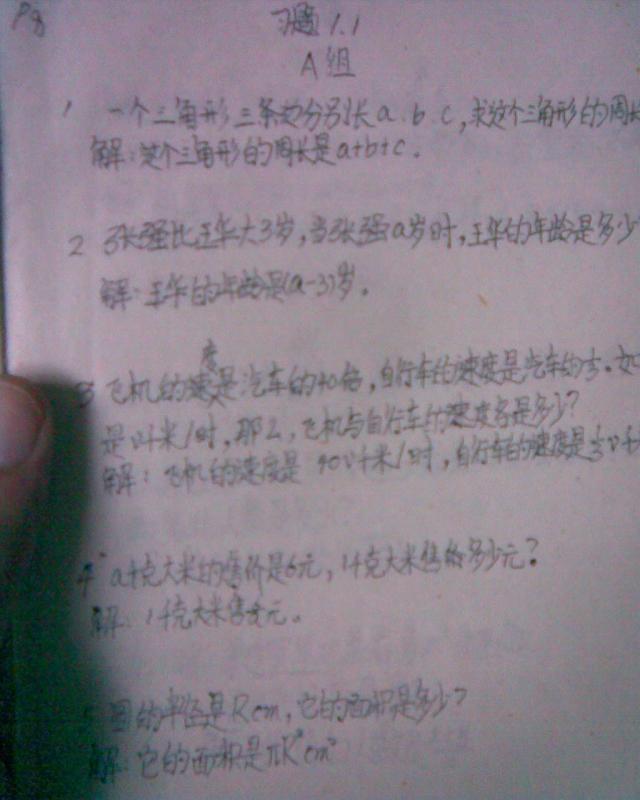 P8
习题1.1
A组
1 一个三角形三条边分别长a.b.c,求这个三角形的周长
解:这个三角形的周长是a+b+c.
2 张强比王华大3岁,当张强a岁时,王华的年龄是多少
解:王华的年龄是(a-3)岁.
度
3 飞机的速是汽车的40倍,自行车的速度是汽车的
是v千米/时,那么,飞机与自行车的速度各是多少?
解:飞机的速度是 40v千米/时,自行车的速度是
4 a千克大米的售价是6元,1千克大米售价多少元?
解:1千克大米售 元.
5 圆的半径是Rcm,它的面积是多少?
解:它的面积是πR²cm²